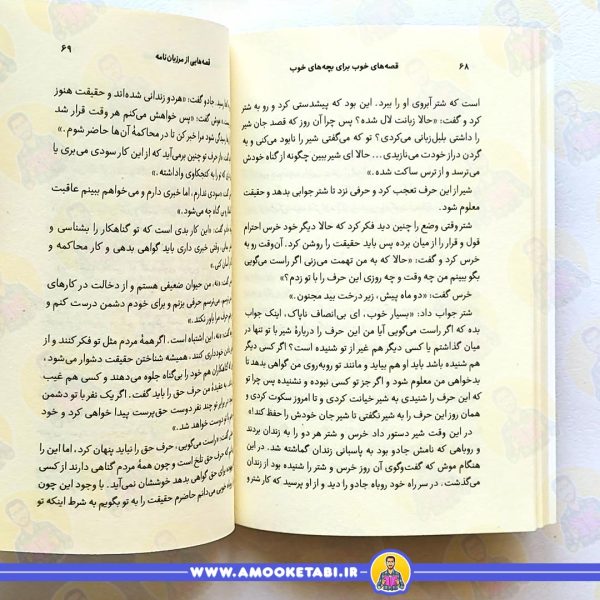 ۶۸ قصه‌های خوب برای بچه‌های خوب
است که شتر آبروی او را ببرد. این بود که پیشدستی کرد و رو به شتر
کرد و گفت: «حالا زبانت لال شده؟ پس چرا آن روز که قصد جان شیر
را داشتی بلبل‌زبانی می‌کردی؟ تو که می‌گفتی شیر را نابود می‌کنی و به
گردن دراز خودت می‌نازیدی... حالا ای شیر ببین چگونه از گناه خودش
می‌ترسد و از ترس ساکت شده.»
شیر از این حرف تعجب کرد و حرفی نزد تا شتر جوابی بدهد و حقیقت
معلوم شود.
شتر وقتی وضع را چنین دید فکر کرد که حالا دیگر خود خرس احترام
قول و قرار را از میان برده پس باید حقیقت را روشن کرد. آن‌وقت رو به
خرس کرد و گفت: «حالا که به من تهمت می‌زنی اگر راست می‌گویی
بگو ببینم من چه وقت و چه روزی این حرف را با تو زدم؟»
خرس گفت: «دو ماه پیش، زیر درخت بید مجنون.»
شتر جواب داد: «بسیار خوب، ای بی‌انصاف ناپاک، اینک جواب
بده که اگر راست می‌گویی آیا من این حرف را دربارهٔ شیر با تو تنها در
میان گذاشتم یا کسی دیگر هم غیر از تو شنیده است؟ اگر دیگری هم
شنیده باشد باید او هم بیاید و مانند تو روبه‌روی من گواهی بدهد تا
بدخواهی من معلوم شود و اگر جز تو کسی نبوده و نشنیده پس چرا تو
که این حرف را شنیدی به شیر خیانت کردی و تا امروز سکوت کردی و
همان روز این حرف را به شیر نگفتی تا شیر جان خودش را حفظ کند!»
در این وقت شیر دستور داد خرس و شتر هر دو را به زندان بردند
و روباهی که نامش جادو بود به پاسبانی زندان گماشته شد. در این
هنگام موش که گفت‌وگوی آن روز خرس و شتر را شنیده بود از زندان
می‌گذشت. در سر راه خود روباه جادو را دید و از او پرسید که کار شتر و
قصه‌هایی از مرزبان‌نامه ۶۹
رسید. جادو گفت: «هر دو زندانی شده‌اند و حقیقت هنوز
موش گفت: «پس خواهش می‌کنم هر وقت قرار شد
رسیدگی شود مرا خبر کن تا در محاکمهٔ آن‌ها حاضر شوم.»
حرف تو چنین برمی‌آید که از این کار سودی می‌بری یا
به کنجکاوی واداشته.»
«سودی ندارم، اما خبری دارم و می‌خواهم ببینم عاقبت
گناه چه می‌شود.»
گفت: «این کار بدی است که تو گناهکار را بشناسی و
وقتی خبری داری باید گواهی بدهی و کار محاکمه و
آسان کنی.»
«نه، من حیوان ضعیفی هستم و از دخالت در کارهای
می‌ترسم حرفی بزنم و برای خودم دشمن درست کنم و
حرف مرا باور نکند.»
«نه، این اشتباه است. اگر همهٔ مردم مثل تو فکر کنند و از
خودداری کنند، همیشه شناختن حقیقت دشوار می‌شود،
گناهکارها هم خود را بی‌گناه جلوه می‌دهند و کسی هم غیب
عقیدهٔ من حرف حق را باید گفت. اگر یک نفر با تو دشمن
تو چند نفر دوست حق‌پرست پیدا خواهی کرد و خود
دوست خواهد شد.»
«راست می‌گویی، حرف حق را نباید پنهان کرد، اما این را
که حرف حق تلخ است و چون همهٔ مردم گناهی دارند از کسی
برای حق گواهی بدهد خوششان نمی‌آید. با وجود این چون
خوبی می‌دانم حاضرم حقیقت را به تو بگویم به شرط اینکه تو
WWW.AMOOKETABI.IR